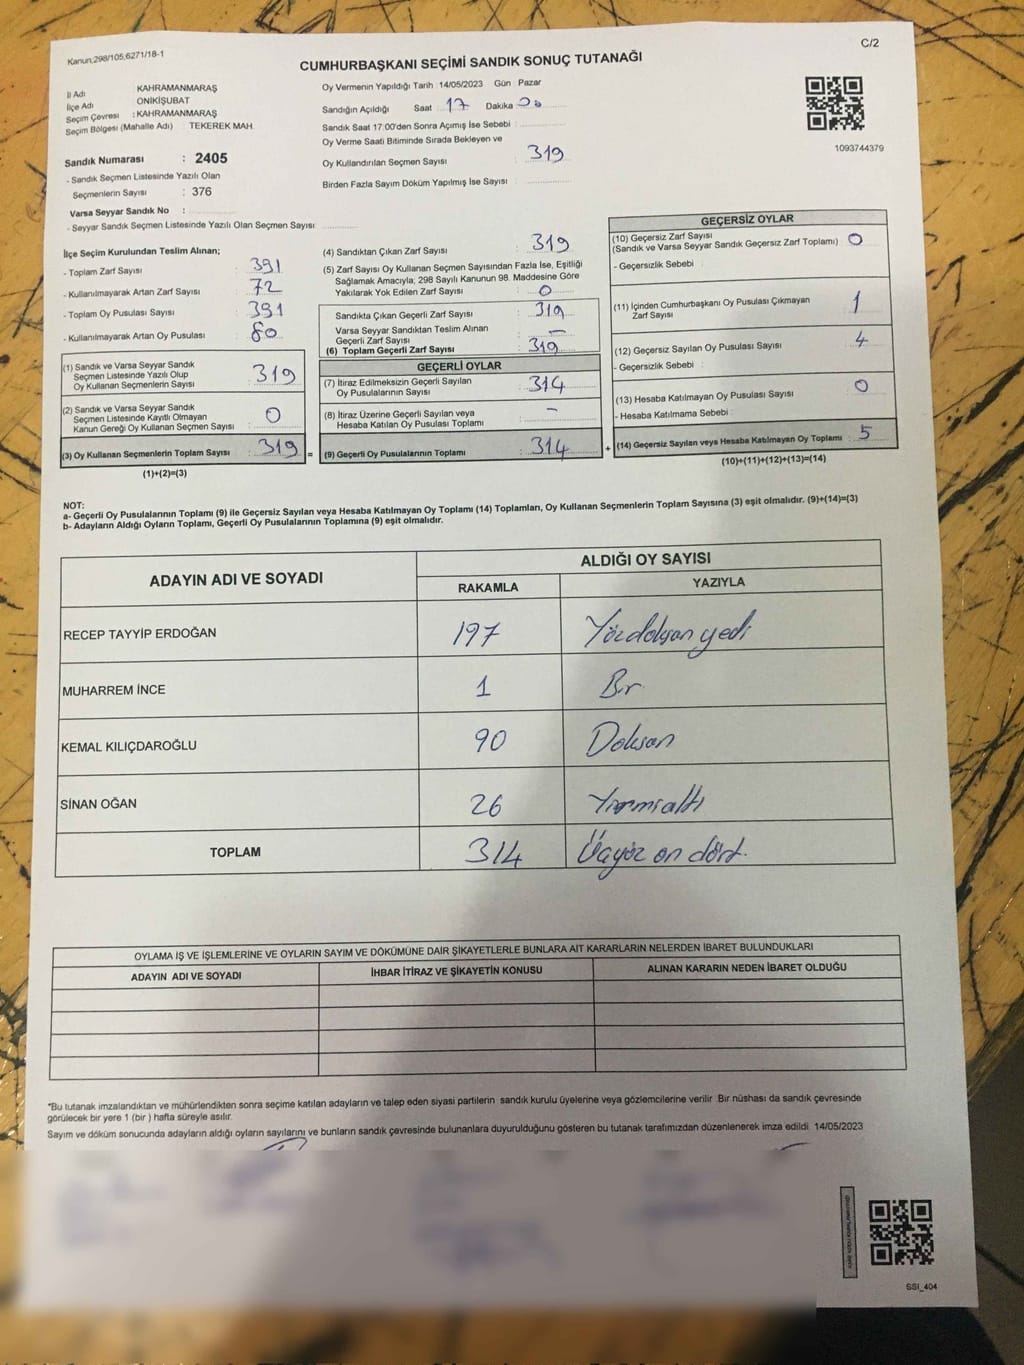 Kanun,298/105,6271/18-1
C/2
CUMHURBAŞKANI SEÇİMİ SANDIK SONUÇ TUTANAĞI
İl Adı KAHRAMANMARAŞ
İlçe Adı ONİKİŞUBAT
Seçim Çevresi : KAHRAMANMARAŞ
Seçim Bölgesi (Mahalle Adı) : TEKEREK MAH.
Sandık Numarası : 2405
- Sandık Seçmen Listesinde Yazılı Olan
Seçmenlerin Sayısı : 376
Varsa Seyyar Sandık No :
- Seyyar Sandık Seçmen Listesinde Yazılı Olan Seçmen Sayısı:
Oy Vermenin Yapıldığı Tarih :14/05/2023 Gün : Pazar
Sandığın Açıldığı Saat : 17 Dakika : 00
Sandık Saat 17:00'den Sonra Açımış İse Sebebi :
Oy Verme Saati Bitiminde Sırada Bekleyen ve
Oy Kullandırılan Seçmen Sayısı : 319
Birden Fazla Sayım Döküm Yapılmış İse Sayısı :
1093744379
İlçe Seçim Kurulundan Teslim Alınan;
- Toplam Zarf Sayısı : 391
- Kullanılmayarak Artan Zarf Sayısı : 72
- Toplam Oy Pusulası Sayısı : 391
- Kullanılmayarak Artan Oy Pusulası : 80
(1) Sandık ve Varsa Seyyar Sandık
Seçmen Listesinde Yazılı Olup
Oy Kullanan Seçmenlerin Sayısı : 319
(2) Sandık ve Varsa Seyyar Sandık
Seçmen Listesinde Kayıtlı Olmayan
Kanun Gereği Oy Kullanan Seçmen Sayısı : 0
(3) Oy Kullanan Seçmenlerin Toplam Sayısı : 319 =
(1)+(2)=(3)
(4) Sandıktan Çıkan Zarf Sayısı : 319
(5) Zarf Sayısı Oy Kullanan Seçmen Sayısından Fazla İse, Eşitliği
Sağlamak Amacıyla; 298 Sayılı Kanunun 98. Maddesine Göre
Yakılarak Yok Edilen Zarf Sayısı : 0
Sandıkta Çıkan Geçerli Zarf Sayısı : 319
Varsa Seyyar Sandıktan Teslim Alınan
Geçerli Zarf Sayısı : —
(6) Toplam Geçerli Zarf Sayısı : 319
GEÇERLİ OYLAR
(7) İtiraz Edilmeksizin Geçerli Sayılan
Oy Pusulalarının Sayısı : 314
(8) İtiraz Üzerine Geçerli Sayılan veya
Hesaba Katılan Oy Pusulası Toplamı : -
(9) Geçerli Oy Pusulalarının Toplamı : 314 +
GEÇERSİZ OYLAR
(10) Geçersiz Zarf Sayısı
(Sandık ve Varsa Seyyar Sandık Geçersiz Zarf Toplamı) : 0
- Geçersizlik Sebebi :
(11) İçinden Cumhurbaşkanı Oy Pusulası Çıkmayan
Zarf Sayısı : 1
(12) Geçersiz Sayılan Oy Pusulası Sayısı : 4
- Geçersizlik Sebebi :
(13) Hesaba Katılmayan Oy Pusulası Sayısı : 0
- Hesaba Katılmama Sebebi :
(14) Geçersiz Sayılan veya Hesaba Katılmayan Oy Toplamı : 5
(10)+(11)+(12)+(13)=(14)
NOT:
a- Geçerli Oy Pusulalarının Toplamı (9) ile Geçersiz Sayılan veya Hesaba Katılmayan Oy Toplamı (14) Toplamları, Oy Kullanan Seçmenlerin Toplam Sayısına (3) eşit olmalıdır. (9)+(14)=(3)
b- Adayların Aldığı Oyların Toplamı, Geçerli Oy Pusulalarının Toplamına (9) eşit olmalıdır.
ADAYIN ADI VE SOYADI
ALDIĞI OY SAYISI
RAKAMLA YAZIYLA
RECEP TAYYİP ERDOĞAN 197 Yüzdoksan yedi
MUHARREM İNCE 1 Bir
KEMAL KILIÇDAROĞLU 90 Doksan
SİNAN OĞAN 26 Yirmialtı
TOPLAM 314 Üçyüz on dört.
OYLAMA İŞ VE İŞLEMLERİNE VE OYLARIN SAYIM VE DÖKÜMÜNE DAİR ŞİKAYETLERLE BUNLARA AİT KARARLARIN NELERDEN İBARET BULUNDUKLARI
ADAYIN ADI VE SOYADI İHBAR İTİRAZ VE ŞİKAYETİN KONUSU ALINAN KARARIN NEDEN İBARET OLDUĞU
*Bu tutanak imzalandıktan ve mühürlendikten sonra seçime katılan adayların ve talep eden siyasi partilerin sandık kurulu üyelerine veya gözlemcilerine verilir. Bir nüshası da sandık çevresinde
görülecek bir yere 1 (bir ) hafta süreyle asılır.
Sayım ve döküm sonucunda adayların aldığı oyların sayılarını ve bunların sandık çevresinde bulunanlara duyurulduğunu gösteren bu tutanak tarafımızdan düzenlenerek imza edildi. 14/05/2023
SSI_404